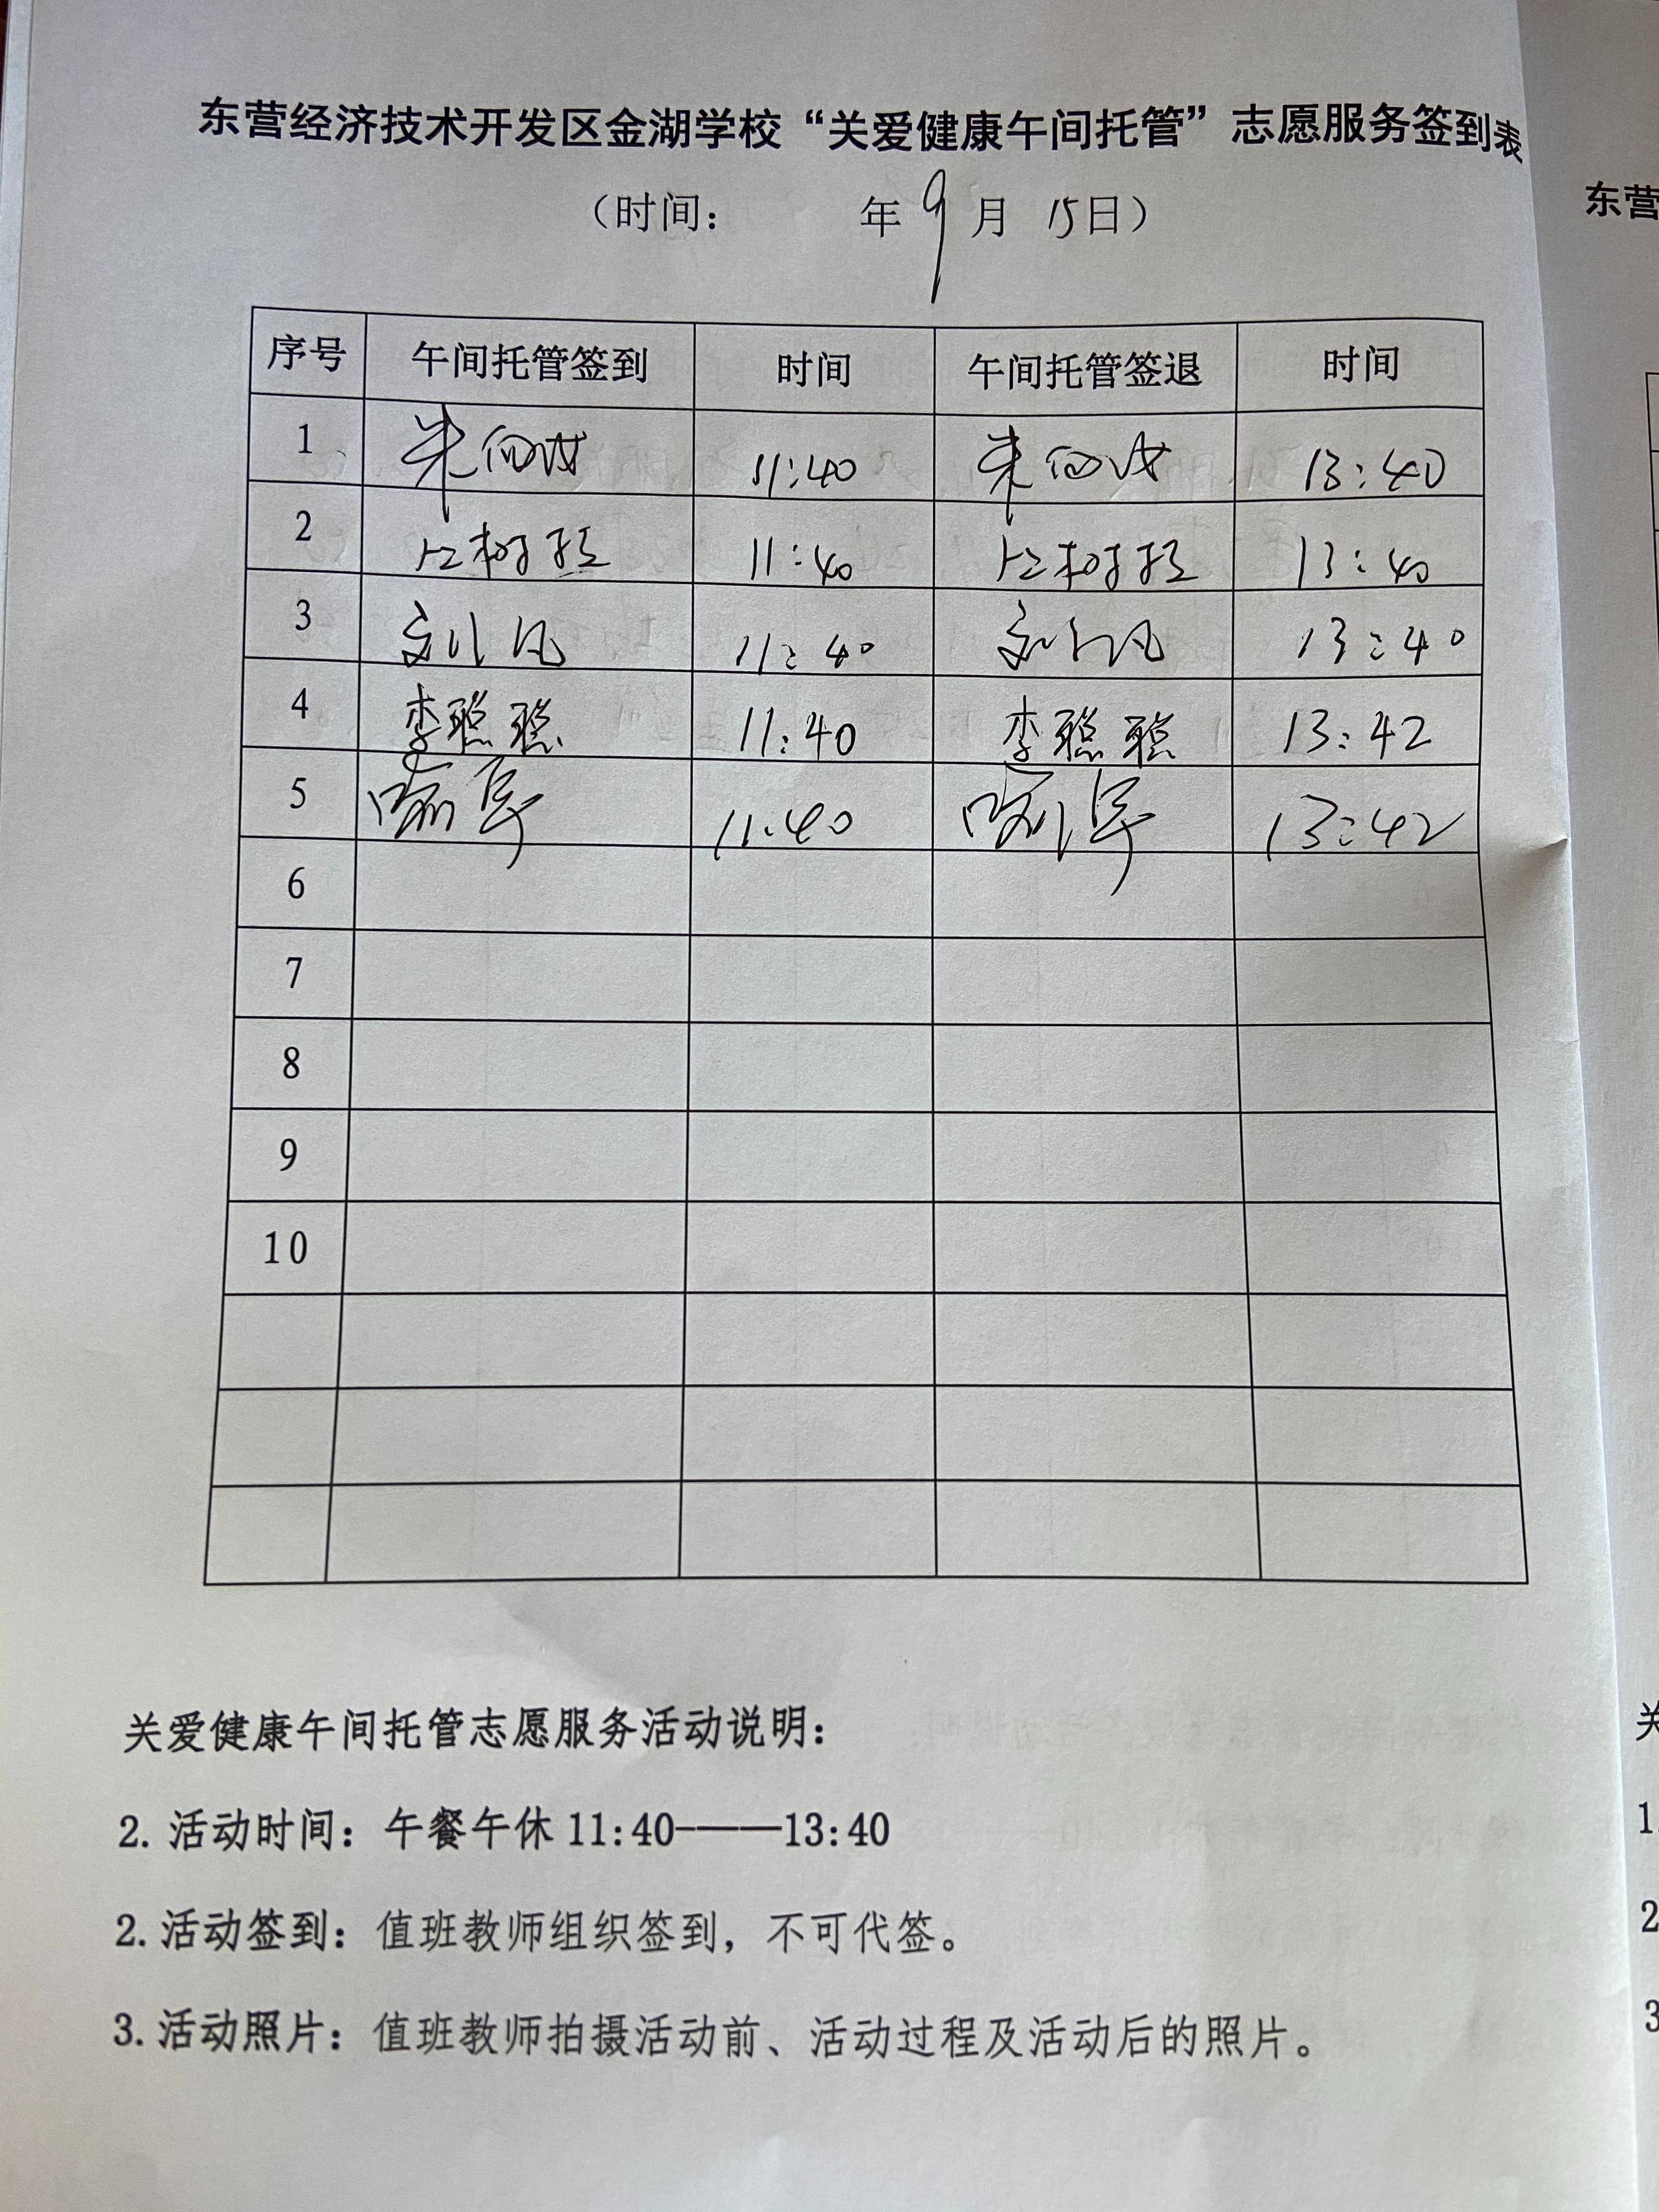 东营经济技术开发区金湖学校“关爱健康午间托管”志愿服务签到表
（时间： 年 9 月 15日）
序号 午间托管签到 时间 午间托管签退 时间
1 朱 11:40 朱 13:40
2 11:40 13:40
3 刘凡 11:40 刘凡 13:40
4 李聪聪 11:40 李聪聪 13:42
5 11:40 13:42
6
7
8
9
10
关爱健康午间托管志愿服务活动说明：
2. 活动时间：午餐午休 11:40———13:40
2. 活动签到：值班教师组织签到，不可代签。
3. 活动照片：值班教师拍摄活动前、活动过程及活动后的照片。
东营
关
1.
2
3